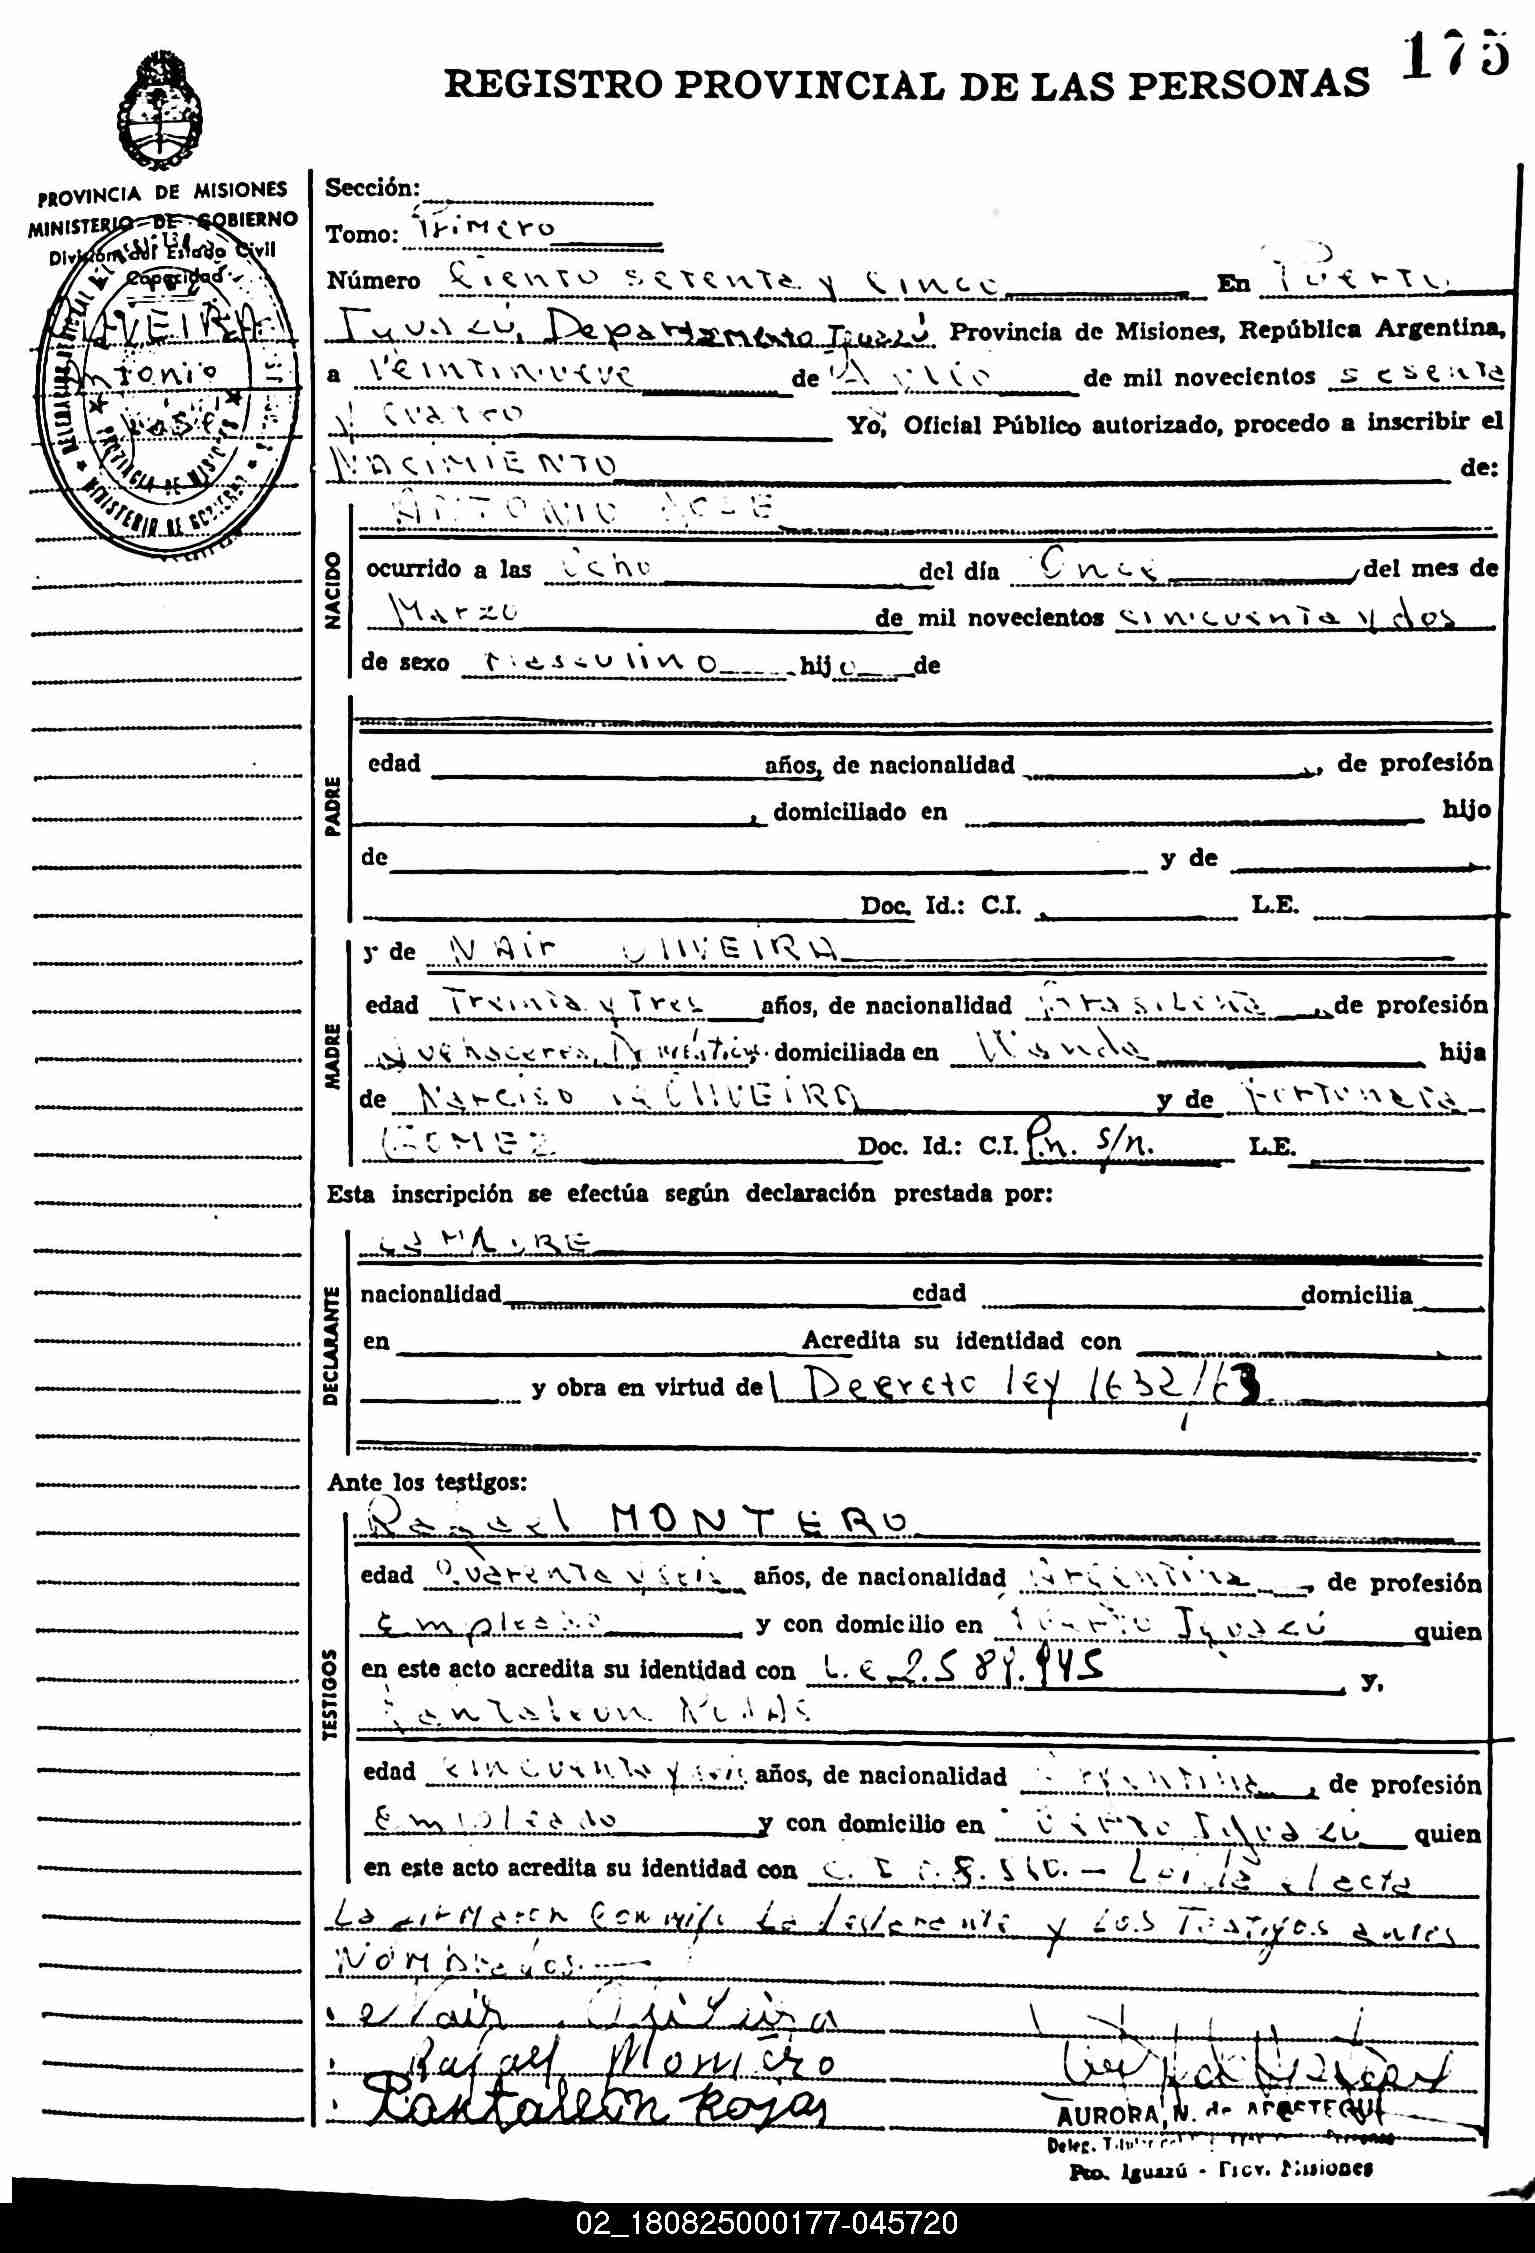 175
REGISTRO PROVINCIAL DE LAS PERSONAS
PROVINCIA DE MISIONES
MINISTERIO DE GOBIERNO
División del Estado Civil
Capacidad
OLIVEIRA
Antonio
José
Sección:
Tomo: Primero
Número Ciento setenta y cinco En Puerto
Iguazú, Departamento Iguazú Provincia de Misiones, República Argentina,
a Veintinueve de de mil novecientos sesenta
y cuatro Yo, Oficial Público autorizado, procedo a inscribir el
NACIMIENTO de:
NACIDO
ANTONIO JOSE
ocurrido a las Ocho del día Once del mes de
Marzo de mil novecientos cincuenta y dos
de sexo Masculino hijo de
PADRE
edad años, de nacionalidad , de profesión
, domiciliado en hijo
de y de
Doc. Id.: C.I. L.E.
MADRE
y de NAIR OLIVEIRA
edad Treinta y Tres años, de nacionalidad Brasileña, de profesión
Quehaceres Domésticos domiciliada en Wanda hija
de Narciso OLIVEIRA y de Fortunata
GOMEZ Doc. Id.: C.I. P.n. s/n. L.E.
Esta inscripción se efectúa según declaración prestada por:
DECLARANTE
La MADRE
nacionalidad edad domicilia
en Acredita su identidad con
y obra en virtud del Decreto ley 1632/63
Ante los testigos:
TESTIGOS
Rafael MONTERO
edad Quarenta y seis años, de nacionalidad Argentina, de profesión
Empleado y con domicilio en Puerto Iguazú quien
en este acto acredita su identidad con L.E 2.589.945 y,
Pantaleon ROJAS
edad cincuenta y seis años, de nacionalidad Argentina, de profesión
Empleado y con domicilio en Puerto Iguazú quien
en este acto acredita su identidad con C. I. Leída el acta
La firmaron conmigo La declarante y Los Testigos antes
Nombrados.
Nair Oliveira
Rafael Montero
Pantaleón Rojas
AURORA N. de ARRETEGUI
Deleg. Titular
Pto. Iguazú - Prov. Misiones
02_180825000177-045720